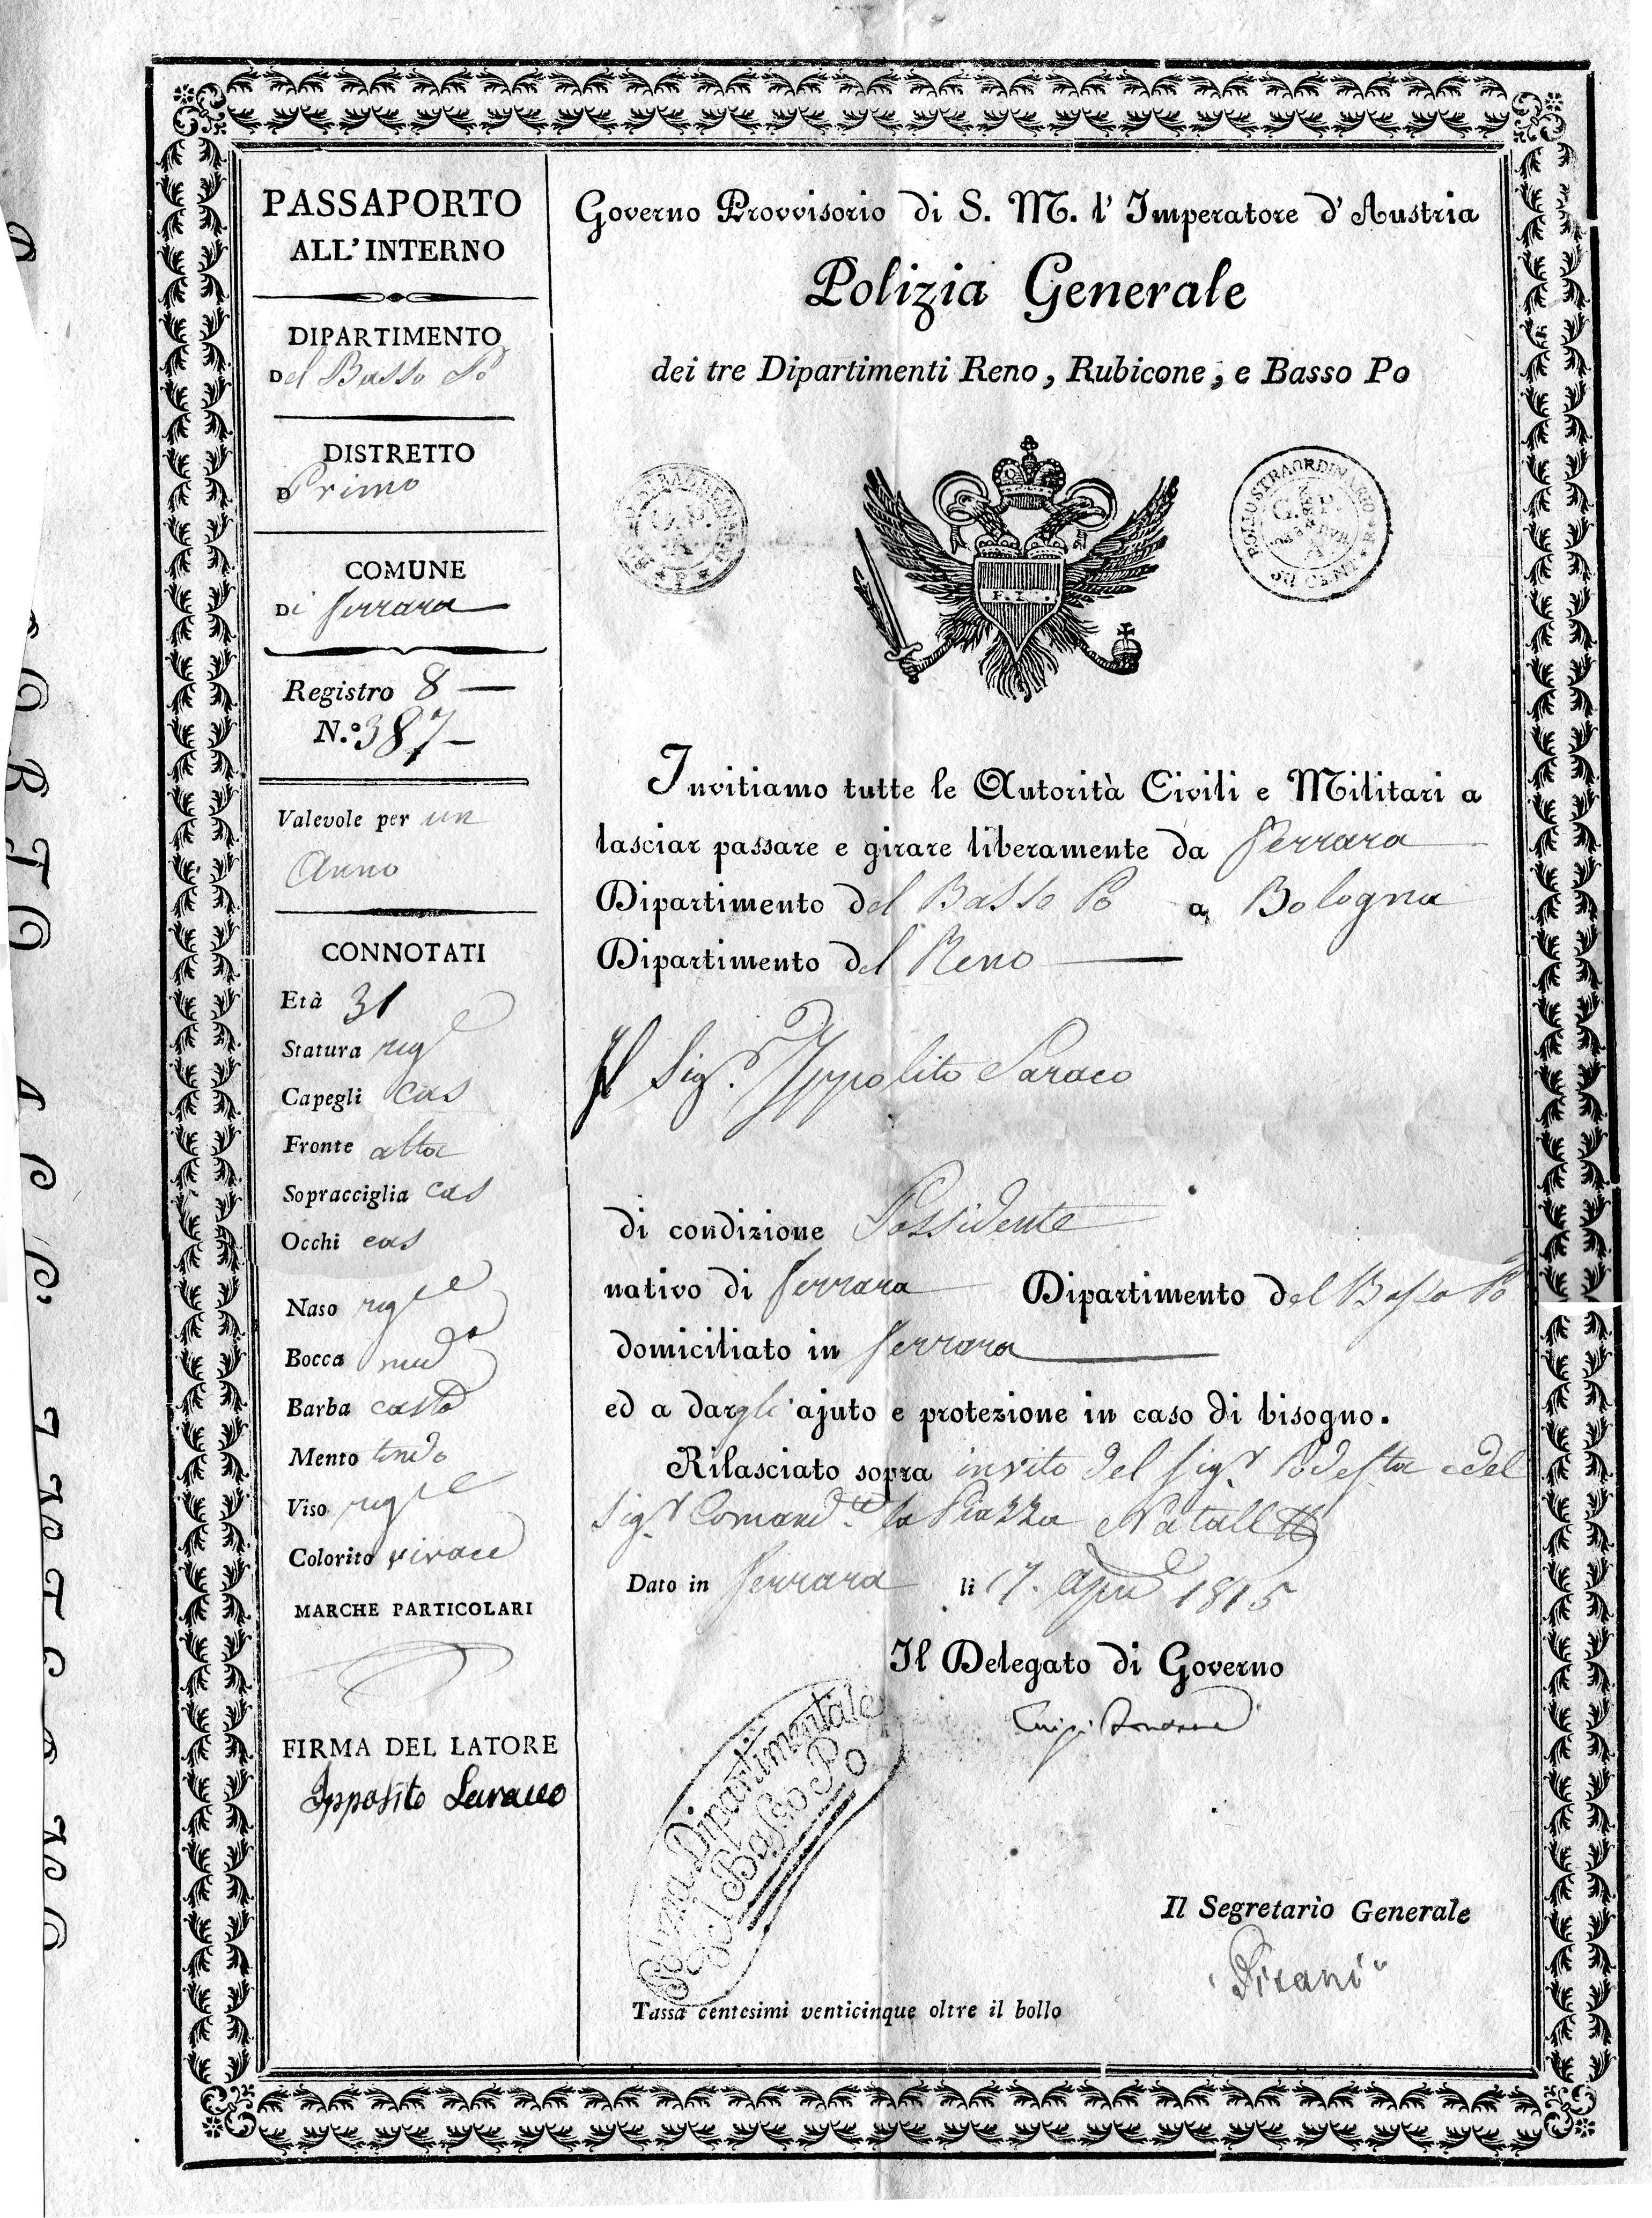 PASSAPORTO
ALL'INTERNO
DIPARTIMENTO
Del Basso Po
DISTRETTO
D Primo
COMUNE
Di Ferrara
Registro 8
N.º 387
Valevole per un
Anno
CONNOTATI
Età 31
Statura regle
Capegli cas
Fronte alta
Sopracciglia cas
Occhi cas
Naso regle
Bocca meda
Barba casta
Mento tondo
Viso regle
Colorito vivace
MARCHE PARTICOLARI
FIRMA DEL LATORE
Ippolito Saracco
Governo Provvisorio di S. M. l' Imperatore d' Austria
Polizia Generale
dei tre Dipartimenti Reno, Rubicone, e Basso Po
BOLLO STRAORDINARIO
G. P.
A
50 CENT.
F. I.
Invitiamo tutte le Autorità Civili e Militari a
lasciar passare e girare liberamente da Ferrara
Dipartimento del Basso Po a Bologna
Dipartimento del Reno
Il Sigr. Ippolito Saraco
di condizione Possidente
nativo di Ferrara Dipartimento del Basso Po
domiciliato in Ferrara
ed a dargli ajuto e protezione in caso di bisogno.
Rilasciato sopra invito del Sigr Podesta e del
Sigr Comandte la Piazza
Dato in Ferrara li 17. Aprile 1815
Il Delegato di Governo
Luigi
Polizia Dipartimentale
del Basso Po
Il Segretario Generale
"Pisani"
Tassa centesimi venticinque oltre il bollo